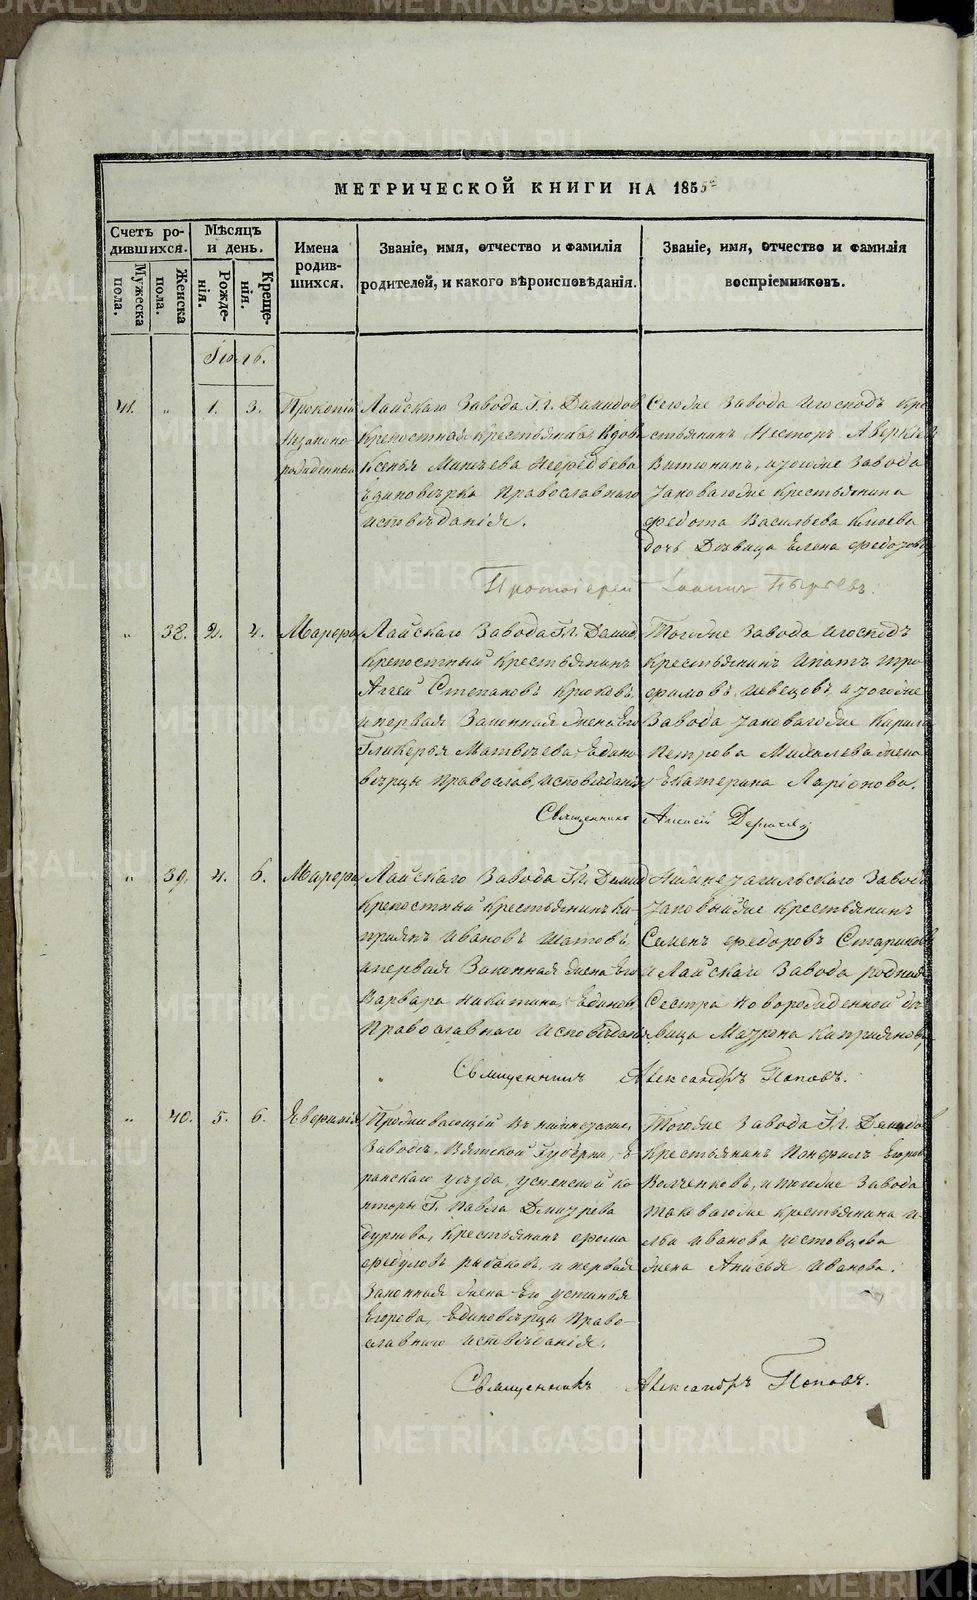 МЕТРИЧЕСКОЙ КНИГИ НА 1855
Счетъ ро-
дившихся.
Мужеска
пола.
Женска
пола.
Мѣсяцъ
и день.
Рожде-
нія.
Креще-
нія.
Имена
родив-
шихся.
Званіе, имя, отчество и фамилія
родителей, и какого вѣроисповѣданія.
Званіе, имя, отчество и фамилія
воспріемниковъ.
Іюль.
41. „ 1. 3. Прокопій
незаконно
рожденный
Лайскаго Завода Гг. Демидов
крепостная крестьянка вдова
Ксенья
Единовѣрка Православнаго
исповѣданія.
Сегоже Завода и господъ кре
стьянинъ Несторъ Аверкіев
Витюнинъ, и тогоже Завода
таковагоже крестьянина
Федота Васильева
дочь Дѣвица Елена Федотова
Протоіерей Іоаннъ Пырьевъ.
„ 38. 2. 4. Марфа
Лайскаго Завода Гг. Демид
крепостный крестьянинъ
Аггей Степановъ Крюковъ
и первая Законная жена Его
Гликерья Матвѣева, Едино
вѣрцы Православ, исповѣданія
Тогоже Завода и господъ
крестьянинъ Ипатъ Тро
фимовъ Швецовъ, и тогоже
Завода таковагоже Кирила
Петрова Михалева жена
Екатерина Ларіонова.
Священникъ Алексій
„ 39. 4. 6. Марфа
Лайскаго Завода Гг. Демид
крепостный крестьянинъ Ки-
пріянъ Ивановъ Шатовъ,
и первая Законная жена Его
Варвара Никитина, Единов,
Православнаго исповѣданія
Нижнетагильскаго Завода
таковыйже крестьянинъ
Семенъ Федоровъ Стариковъ
и Лайскаго Завода родная
Сестра новорожденной дѣ
вица Матрона Кипріянова,
Священникъ Александръ Поповъ.
„ 40. 5. 6. Евфимія
Проживающій въ нижнетагил,
Заводѣ, Вятской Губерніи, Е
ранскаго уѣзда, успенской ко
нторы Г. Павла Дмитрева
Дурнова, крестьянинъ Фома
Федуловъ Рыбаковъ, и первая
Законная жена Его устинья
Егорова, Единовѣрцы Право-
славнаго исповѣданія.
Тогоже Завода Гг. Демидо
крестьянинъ Панфилъ Егоров
Волченковъ, и тогоже Завода
таковагоже крестьянина И
льи Иванова Шестовцева
жена Анисья Иванова.
Священникъ Александръ Поповъ.
METRIKI.GASO-URAL.RU